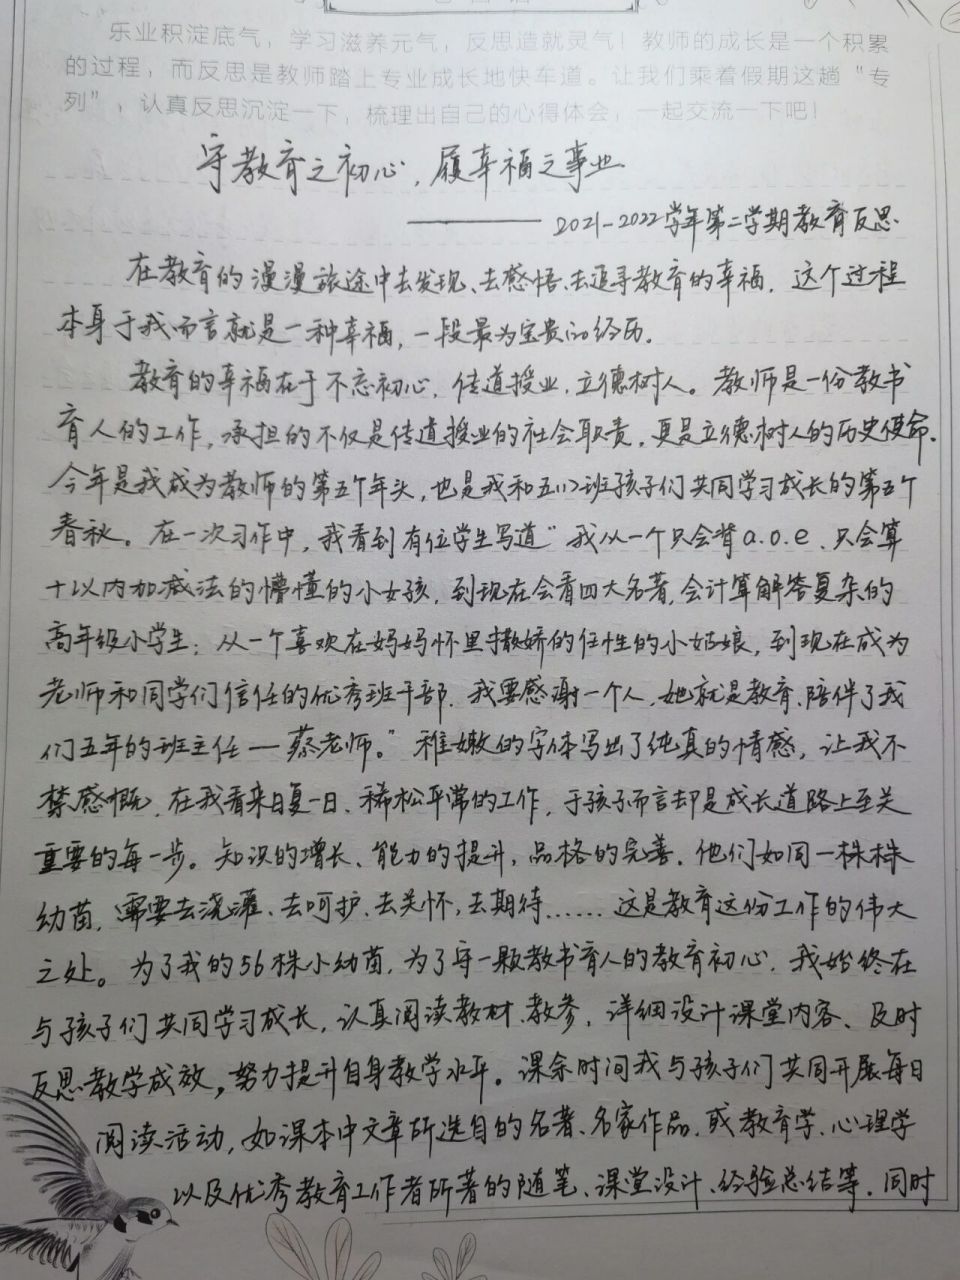 乐业积淀底气，学习滋养元气，反思造就灵气！教师的成长是一个积累
的过程，而反思是教师踏上专业成长地快车道。让我们乘着假期这趟“专
列”，认真反思沉淀一下，梳理出自己的心得体会，一起交流一下吧！
守教育之初心，履幸福之事业
——2021-2022学年第二学期教育反思
在教育的漫漫旅途中去发现、去感悟、去追寻教育的幸福，这个过程
本身于我而言就是一种幸福，一段最为宝贵的经历。
教育的幸福在于不忘初心，传道授业，立德树人。教师是一份教书
育人的工作，承担的不仅是传道授业的社会职责，更是立德树人的历史使命.
今年是我成为教师的第五个年头，也是我和五(1)班孩子们共同学习成长的第五个
春秋。在一次习作中，我看到有位学生写道“我从一个只会背a.o.e、只会算
十以内加减法的懵懂的小女孩，到现在会看四大名著，会计算解答复杂的
高年级小学生；从一个喜欢在妈妈怀里撒娇的任性的小姑娘，到现在成为
老师和同学们信任的优秀班干部。我要感谢一个人，她就是教育、陪伴了我
们五年的班主任—蔡老师。”稚嫩的字体写出了纯真的情感，让我不
禁感慨，在我看来日复一日、稀松平常的工作，于孩子而言却是成长道路上至关
重要的每一步。知识的增长、能力的提升，品格的完善，他们如同一株株
幼苗，需要去浇灌、去呵护、去关怀，去期待……这是教育这份工作的伟大
之处。为了我的56株小幼苗，为了守一颗教书育人的教育初心，我始终在
与孩子们共同学习成长，认真阅读教材、教参，详细设计课堂内容、及时
反思教学成效，努力提升自身教学水平。课余时间我与孩子们共同开展每日
阅读活动，如课本中文章所选自的名著、名家作品，或教育学、心理学
以及优秀教育工作者所著的随笔、课堂设计、经验总结等。同时